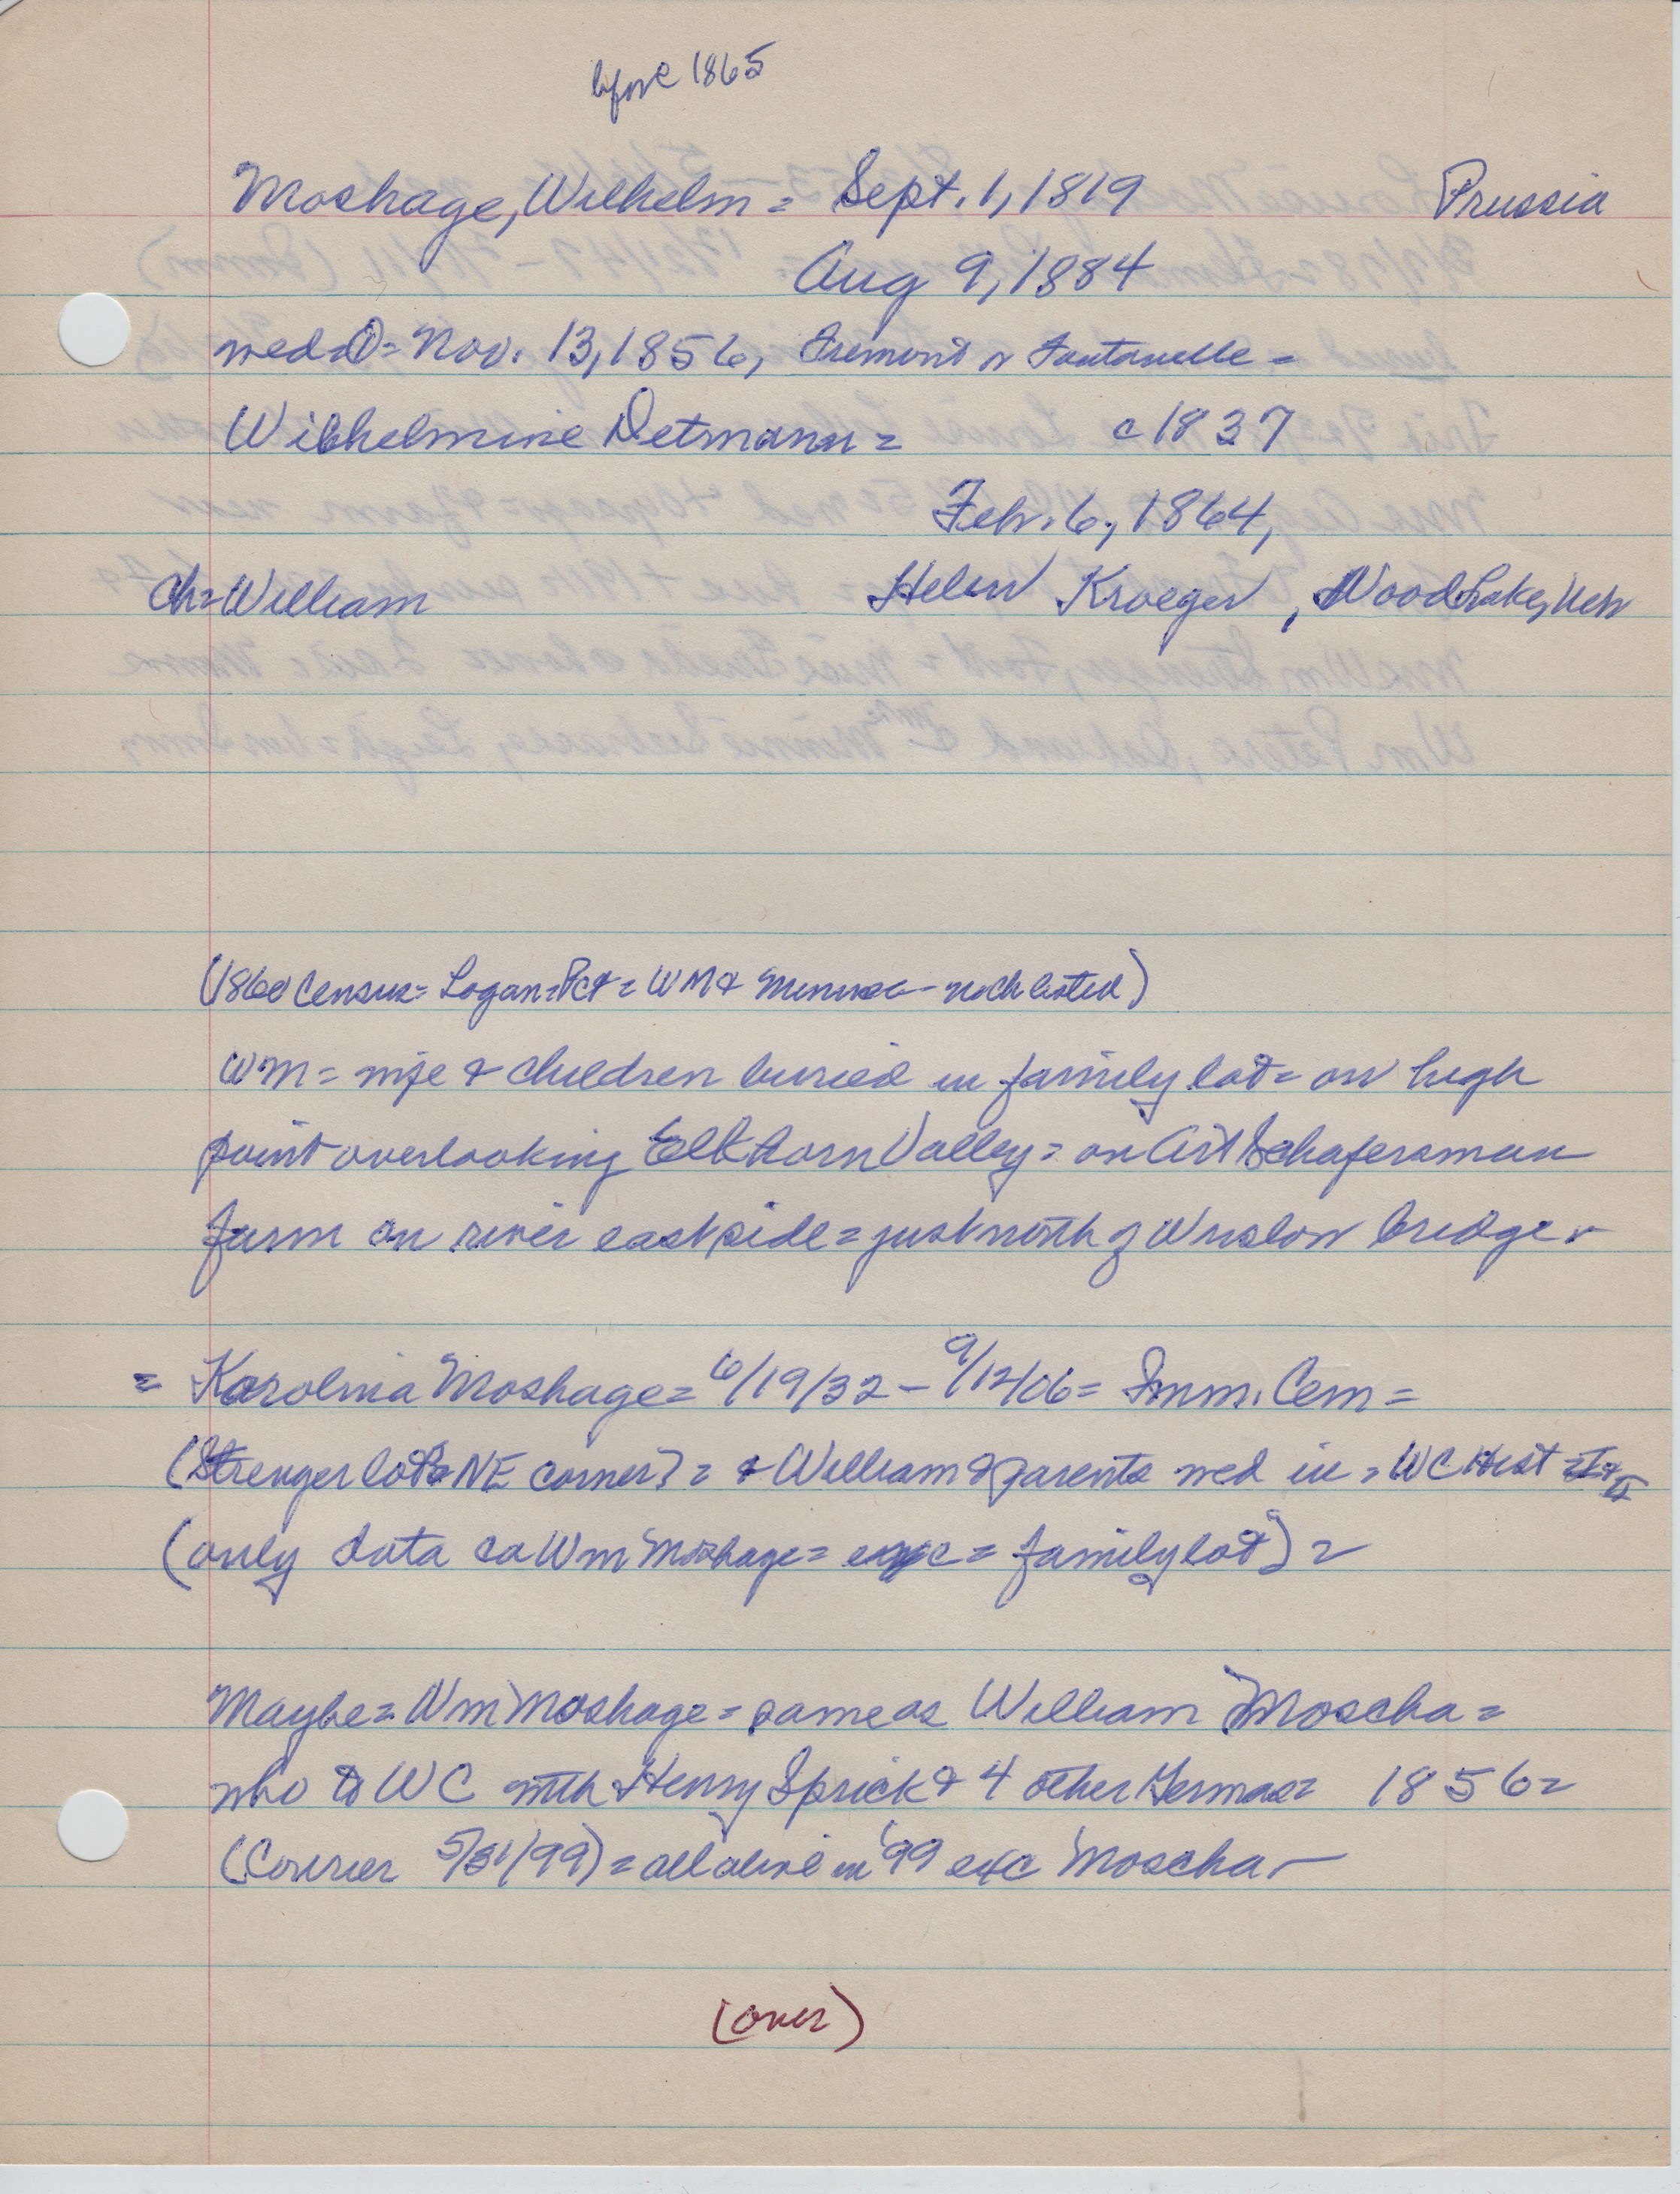 before 1865
Moshage, Wilhelm = Sept. 1, 1819 Prussia
Aug 9, 1884
med = Nov. 13, 1856, Fremont or Fontanelle =
Wilhelmine Detmann = c 1837
Feb. 6, 1864,
ch = William Helen Kroeger, Wood Lake, Neb
(1860 Census = Logan = Pct = WM & Minnie - no ch listed)
WM = wife & children buried in family lot = on high
point overlooking Elkhorn Valley = on Art Schafersman
farm on river east side = just north of Winslow bridge -
= Karolina Moshage = 6/19/32 - 9/12/06 = Imm. Cem =
(Strenger lot = NE corner) = & William & parents med in = WC Hist = I & II
(only data ca Wm Moshage = exc = family lot) =
Maybe = Wm Moshage = same as William Moscha =
who to WC with Henry Sprick & 4 other Germans = 1856 =
(Courier 5/31/99) = all alive in '99 exc Moscha -
(over)